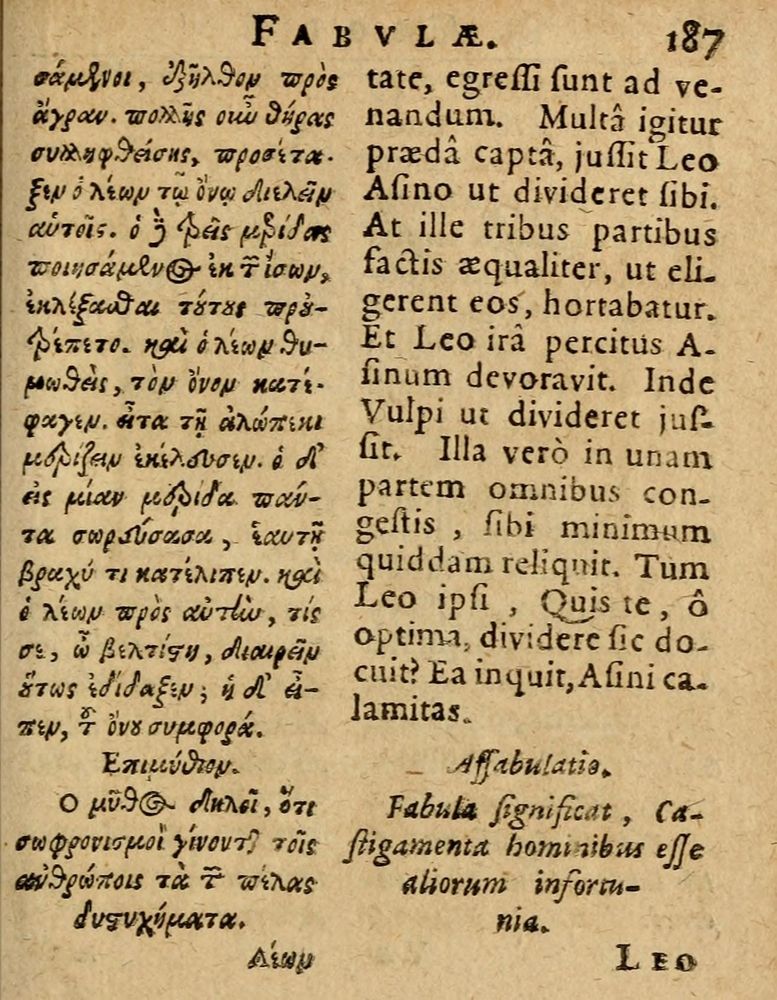 FABVLÆ. 187
σάμενοι, ἐξῆλθον πρὸς
ἄγραν. πολλῆς οὖν θήρας
συλληφθείσης, προσέτα-
ξεν ὁ λέων τῷ ὄνῳ διελεῖν
αὐτοῖς. ὁ δὲ τρεῖς μερίδας
ποιησάμενος ἐκ τῶν ἴσων,
ἐκλέξασθαι τούτους προὐ-
τρέπετο. καὶ ὁ λέων θυ-
μωθεὶς, τὸν ὄνον κατέ-
φαγεν. εἶτα τῇ ἀλώπεκι
μερίζειν ἐκέλευσεν. ἡ δ'
εἰς μίαν μερίδα πάν-
τα σωρεύσασα, ἑαυτῇ
βραχύ τι κατέλιπεν. καὶ
ὁ λέων πρὸς αὐτὴν, τίς
σε, ὦ βελτίστη, διαιρεῖν
οὕτως ἐδίδαξεν; ἡ δ' εἶ-
πεν, ἡ τοῦ ὄνου συμφορά.
Επιμύθιον.
Ο μῦθος δηλοῖ, ὅτι
σωφρονισμοὶ γίνονται τοῖς
ἀνθρώποις τὰ τῶν πέλας
δυστυχήματα.
Λέων
tate, egreſſi ſunt ad ve-
nandum. Multâ igitur
prædâ captâ, juſſit Leo
Aſino ut divideret ſibi.
At ille tribus partibus
factis æqualiter, ut eli-
gerent eos, hortabatur.
Et Leo irâ percitus A-
ſinum devoravit. Inde
Vulpi ut divideret juſ-
ſit. Illa verò in unam
partem omnibus con-
geſtis, ſibi minimum
quiddam reliquit. Tum
Leo ipſi, Quis te, ô
optima, dividere ſic do-
cuit? Ea inquit, Aſini ca-
lamitas.
Affabulatio.
Fabula ſignificat, Ca-
ſtigamenta hominibus eſſe
aliorum infortu-
nia.
LEO